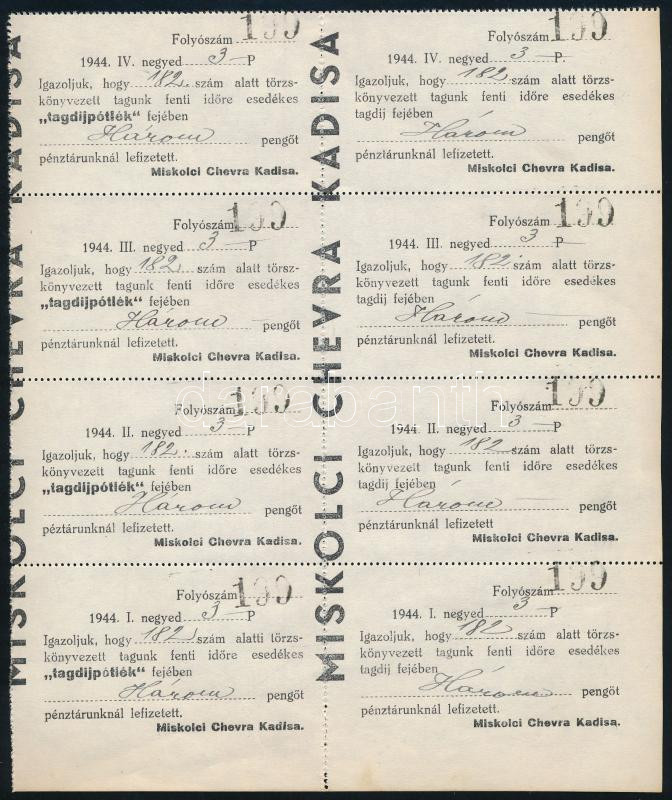 MISKOLCI CHEVRA KADISA
Folyószám 199
1944. IV. negyed 3 P
Igazoljuk, hogy 182. szám alatt törzs-
könyvezett tagunk fenti időre esedékes
„tagdijpótlék“ fejében
Három pengőt
pénztárunknál lefizetett.
Miskolci Chevra Kadisa.
Folyószám 199
1944. III. negyed 3 P
Igazoljuk, hogy 182. szám alatt törsz-
könyvezett tagunk fenti időre esedékes
„tagdijpótlék“ fejében
Három pengőt
pénztárunknál lefizetett.
Miskolci Chevra Kadisa.
Folyószám 199
1944. II. negyed 3 P
Igazoljuk, hogy 182. szám alatt törzs-
könyvezett tagunk fenti időre esedékes
„tagdijpótlék“ fejében
Három pengőt
péztárunknál lefizetett.
Miskolci Chevra Kadisa.
Folyószám 199
1944. I. negyed 3 P
Igazoljuk, hogy 182 szám alatti törzs-
könyvezett tagunk fenti időre esedékes
„tagdijpótlék“ fejében
Három pengőt
pénztárunknál lefizetett.
Miskolci Chevra Kadisa.
MISKOLCI CHEVRA KADISA
Folyószám 199
1944. IV. negyed 3 P.
Igazoljuk, hogy 182 szám alatt törzs-
könyvezett tagunk fenti időre esedékes
tagdij fejében
Három pengőt
pénztárunknál lefizetett.
Miskolci Chevra Kadisa.
Folyószám 199
1944. III. negyed 3 P
Igazoljuk, hogy 182. szám alatt törzs-
könyvezett tagunk fenti időre esedékes
tagdij fejében
Három pengőt
pénztárunknál lefizetett.
Miskolci Chevra Kadisa.
Folyószám 199
1944. II. negyed 3 P
Igazoljuk, hogy 182 szám alatt törzs-
könyvezett tagunk fenti időre esedékes
tagdij fejében
Három pengőt
pénztárunknál lefizetett
Miskolci Chevra Kadisa.
Folyószám 199
1944. I. negyed 3 P
Igazoljuk, hogy 182 szám alatt törzs-
könyvezett tagunk fenti időre esedékes
tagdij fejében
Három pengőt
pénztárunknál lefizetett.
Miskolci Chevra Kadisa.
darabanth